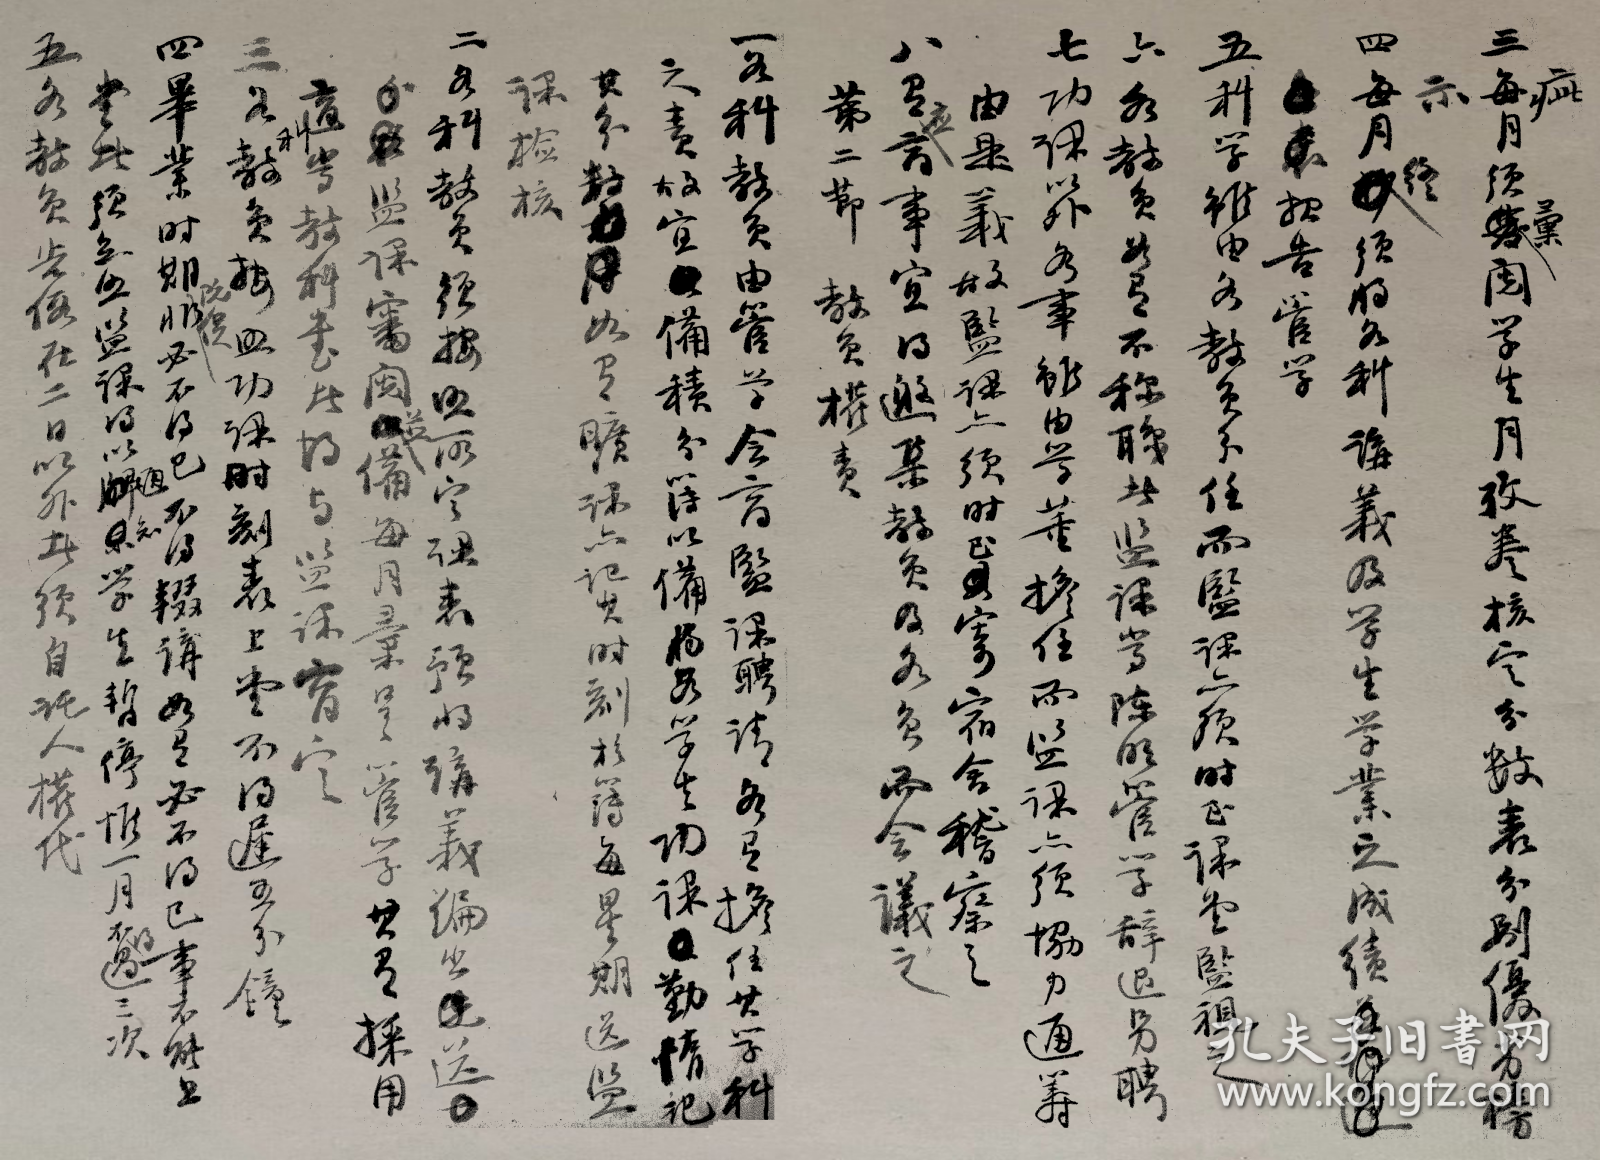 疵
三每月须彙阅学生月考卷核定分数表分别优劣榜
示
四每月终须将各科讲义及学生学业之成绩
表报告管学
五科学虽由各教员分任而监课亦须时至课堂监视之
六各教员如有不称职者监课当陈明管学辞退另聘
七功课以外各事虽由学董担任而监课亦须协力通筹
由是义故监课亦须时至寄宿舍稽察之
八有应商事宜得邀集教员及各员而会议之
第二节 教员权责
一各科教员由管学会商监课聘请各有担任其学科
之责故宜备积分簿以备揭各学生功课勤惰记
其分数如有旷课亦记其时刻于簿每星期送监
课检核
二各科教员须按照所定课表预将讲义编出送
监课审阅并备每月汇呈管学其有采用
商当教科书者得与监课商定
三各科教员按照功课时刻表上堂不得迟五分钟
四毕业时期非必不得已不得辍讲如有必不得已事不能上
堂者须知照监课得以牌示通知学生暂停惟一月不得过三次
五各教员告假在二日以外者须自托人权代
孔夫子旧书网
www.kongfz.com